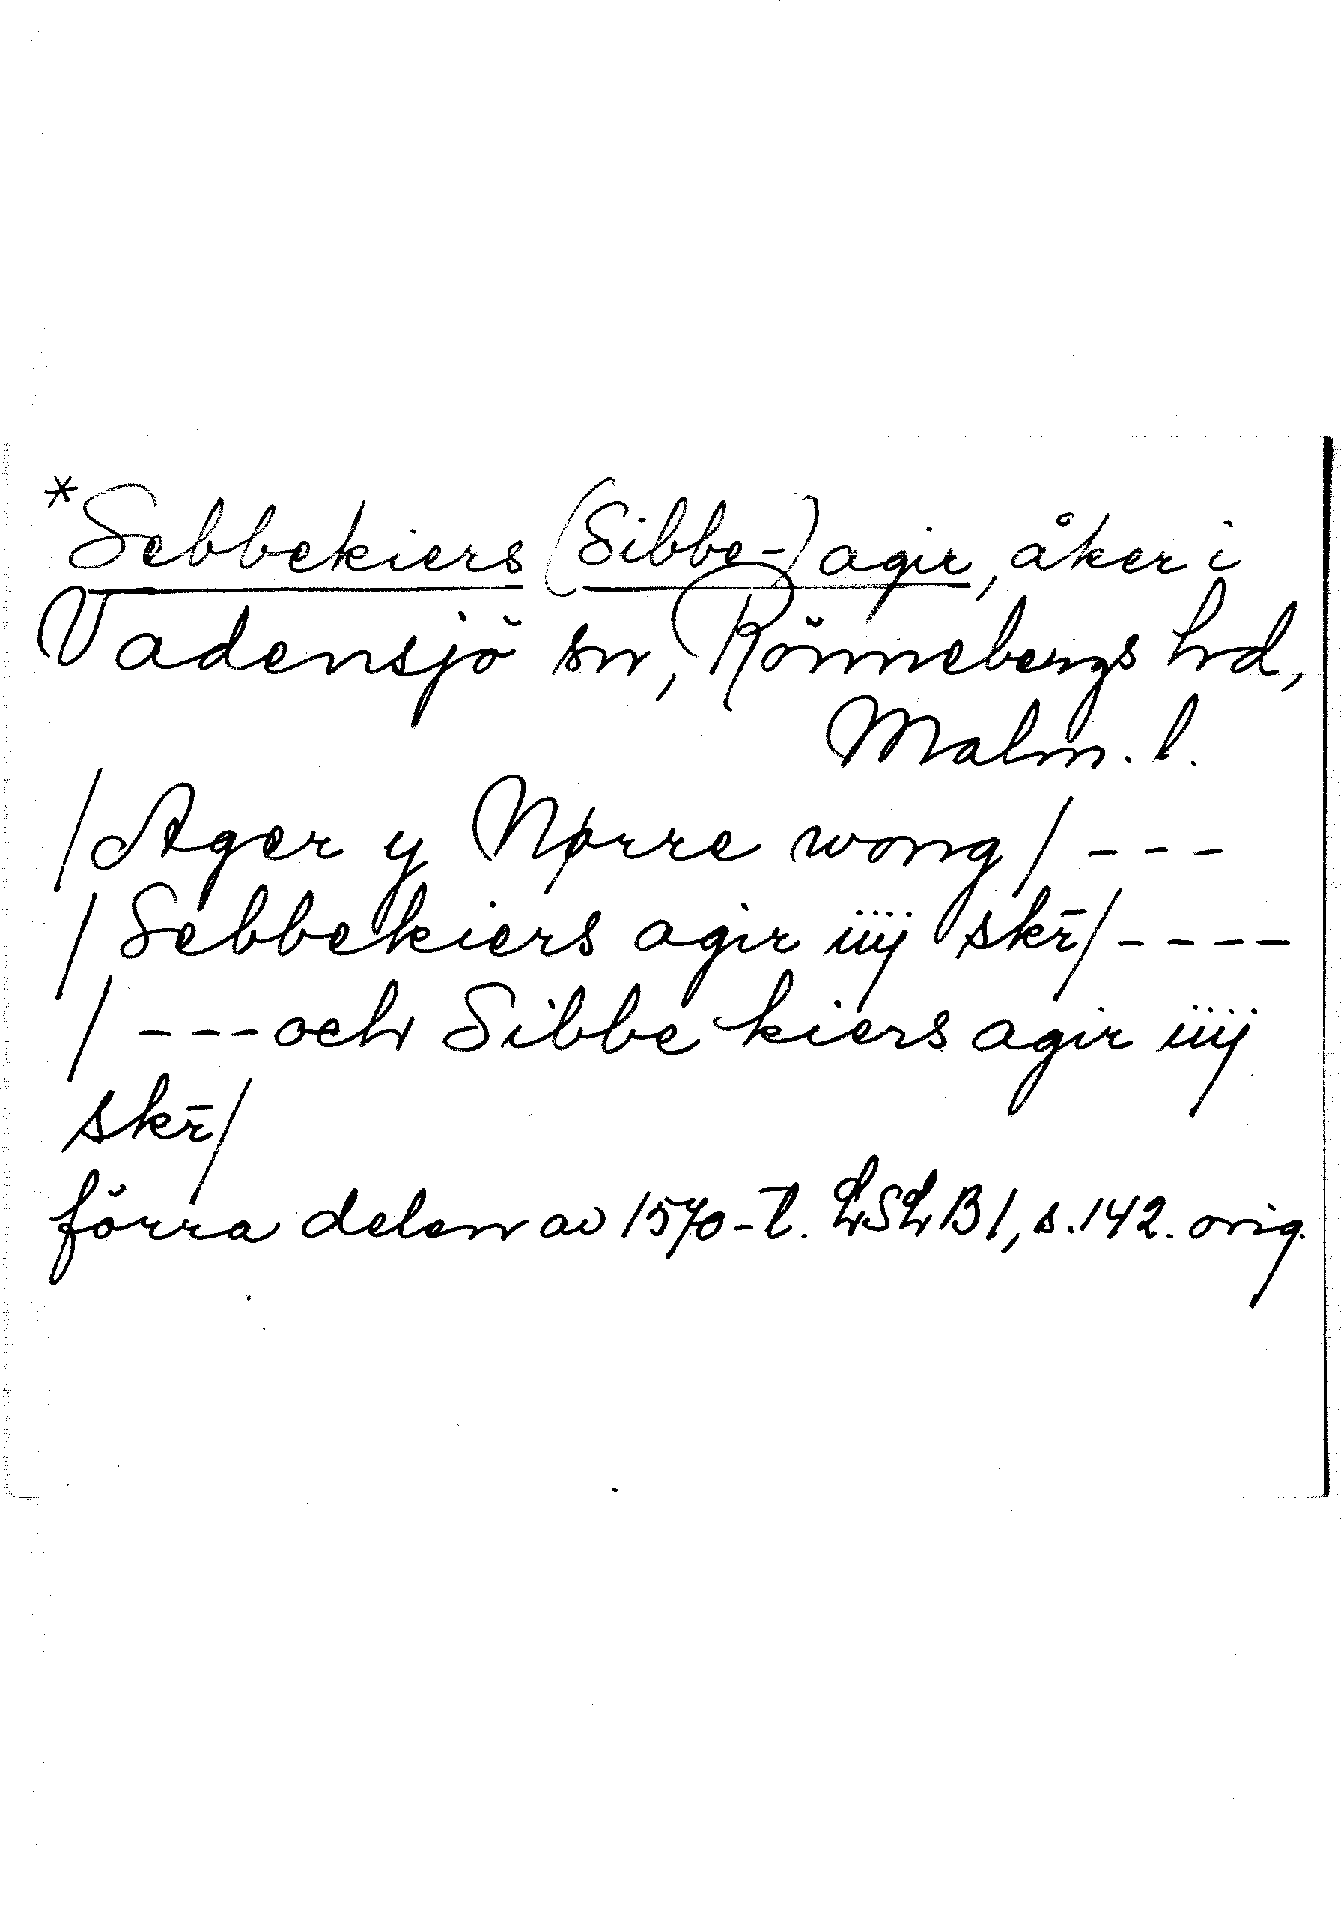 *Sebbekiers (Sibbe-) agir, åker i
Vadensjö sn, Rönnebergs hd,
Malm. l.
/Ager y Nørre wong/ ---
/Sebbekiers agir iiij skr̄/----
/---och Sibbe kiers agir iiij
skr̄/
förra delen av 1570-t. LSLB1, s.142. orig.